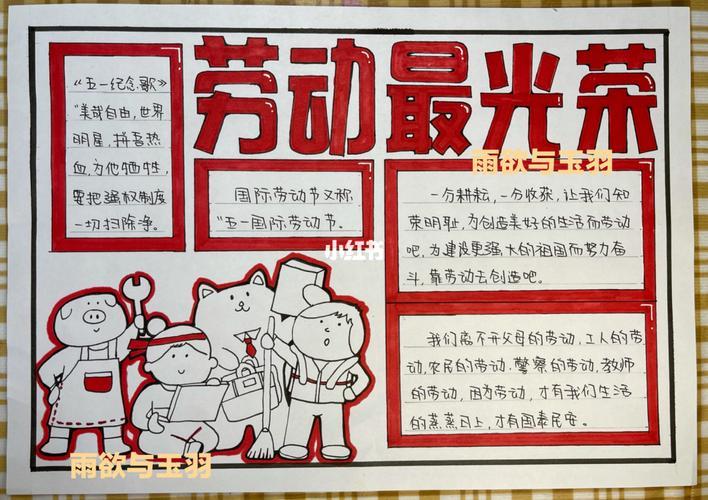 劳动最光荣
《五一纪念歌》
"美哉自由，世界
明星，拼吾热
血，为他牺牲，
要把强权制度
一切扫除净。
国际劳动节又称
"五一国际劳动节。
一分耕耘，一分收获，让我们知
荣明耻，为创造美好的生活而劳动
吧，为建设更强大的祖国而努力奋
斗，靠劳动去创造吧。
我们离不开父母的劳动，工人的劳
动，农民的劳动，警察的劳动，教师
的劳动，因为劳动，才有我们生活
的蒸蒸日上，才有国泰民安。
雨欲与玉羽
小红书
雨欲与玉羽